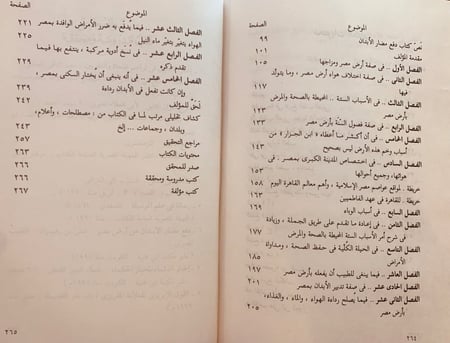 الموضوع الصفحة
نصّ كتاب دفع مضار الأبدان ٩٩
مقدمة المؤلف ١٠١
الفصل الأول .. فى صفة أرض مصر ومزاجها ١٠٥
الفصل الثانى .. فى صفة اختلاف هواء أرض مصر ، وما يتولد
فيها
الفصل الثالث .. فى الأسباب الستة . المحيطة بالصحة والمرض
بأرض مصر ١٢٣
الفصل الرابع .. فى صفة فصول السَّنَة بأرض مصر ١٣٣
الفصل الخامس .. فى أن أكثر ما أعطاه « ابن الجزار » من
أسباب وخم هذه الأرض ليس بصحيح ١٤٣
الفصل السادس .. فى اختصاص المدينة الكبرى بمصر .. فى
هوائها ، وجميع أحوالها ١٥٣
خريطة . لمواقع عواصم مصر الإسلامية ، وأهم معالم القاهرة اليوم ١٥٨
خريطة . للقاهرة فى عهد الفاطميين ١٥٩
الفصل السابع .. فى أسباب الوباء ١٦٩
الفصل الثامن .. فى إعادة ما تقدم على طريق الجملة ، وزيادة
فى شرح أمر الأسباب الستة المحيطة بالصحة والمرض ١٧٧
الفصل التاسع .. فى الحيلة الكلّية فى حفظ الصحة ، ومداواة
الأمراض ١٨٥
الفصل العاشر .. فيما ينبغى للطبيب أن يفعله بأرض مصر ١٩٧
الفصل الحادى عشر .. فى صفة تدبير الأبدان بمصر ٢٠١
الفصل الثانى عشر .. فيما يصلح رداءة الهواء ، والماء ، والغذاء ،
بأرض مصر ٢٠٥
٢٦٤
الموضوع الصفحة
الفصل الثالث عشر .. فيما يُدفَع به ضرر الأمراض الوافدة بمصر ٢٢١
الهواء يتغير بتغير ماء النيل ٢٢٥
الفصل الرابع عشر .. فى نُسَخ أدوية مركبة ، ينتفع بها فيما
تقدم ذكره ٢٢٧
الفصل الخامس عشر .. فى أنه ينبغى أن يُختار السكنى بمصر ،
وإن كانت تفعل فى الأبدان رداءة ٢٣٩
للمؤلف ٢٤٢
كشاف تحليلى مرتب لما فى الكتاب من : مصطلحات ، وأعلام ،
وبلدان ، وجماعات ... إلخ ٢٤٣
مراجع التحقيق ٢٥٧
محتويات الكتاب ٢٦٣
صدر للمحقق ٢٦٦
كتب مدروسة ومحققة ٢٦٦
كتب مؤلفة ٢٦٧
٢٦٥